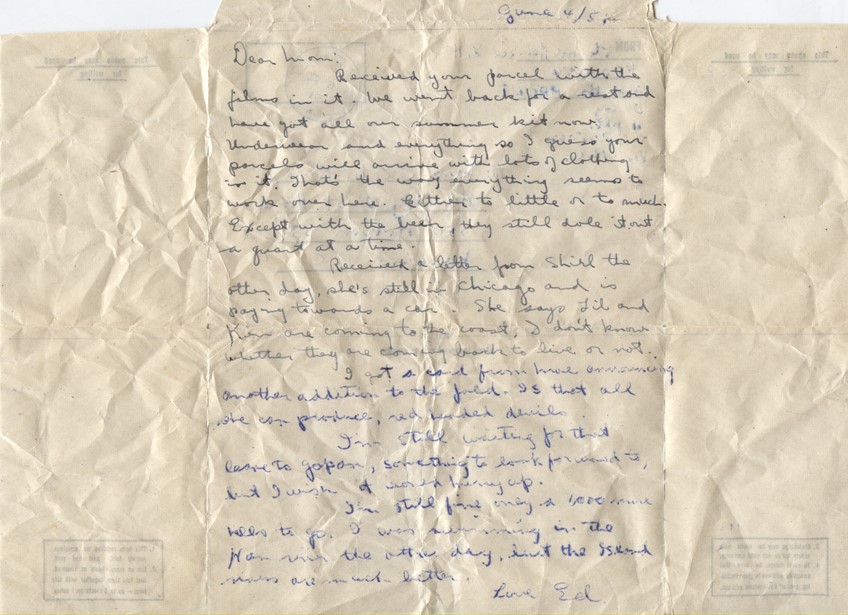 June 4/52
Dear Mom:
Received your parcel with the
films in it. We went back for a rest and
have got all our summer kit now.
Underwear and everything so I guess your
parcels will arrive with lots of clothing
in it. That's the way everything seems to
work over here. Either to little or to much.
Except with the beer, they still dole it out
a quart at a time.
Received a letter from Shirl the
other day, she's still in Chicago and is
saying towards a car. She says Lil and
Ken are coming to the coast, I don't know
whether they are coming back to live or not.
I got a card from announcing
another addition to the fold. Is that all
she can produce, red headed devils.
I'm still waiting for that
leave to Japan, something to look forward to,
but I wish it would hurry up.
I'm still fine only a 1000 more
hills to go. I was swimming in the
Han river the other day, but the Island
rivers are much better.
Love Ed.